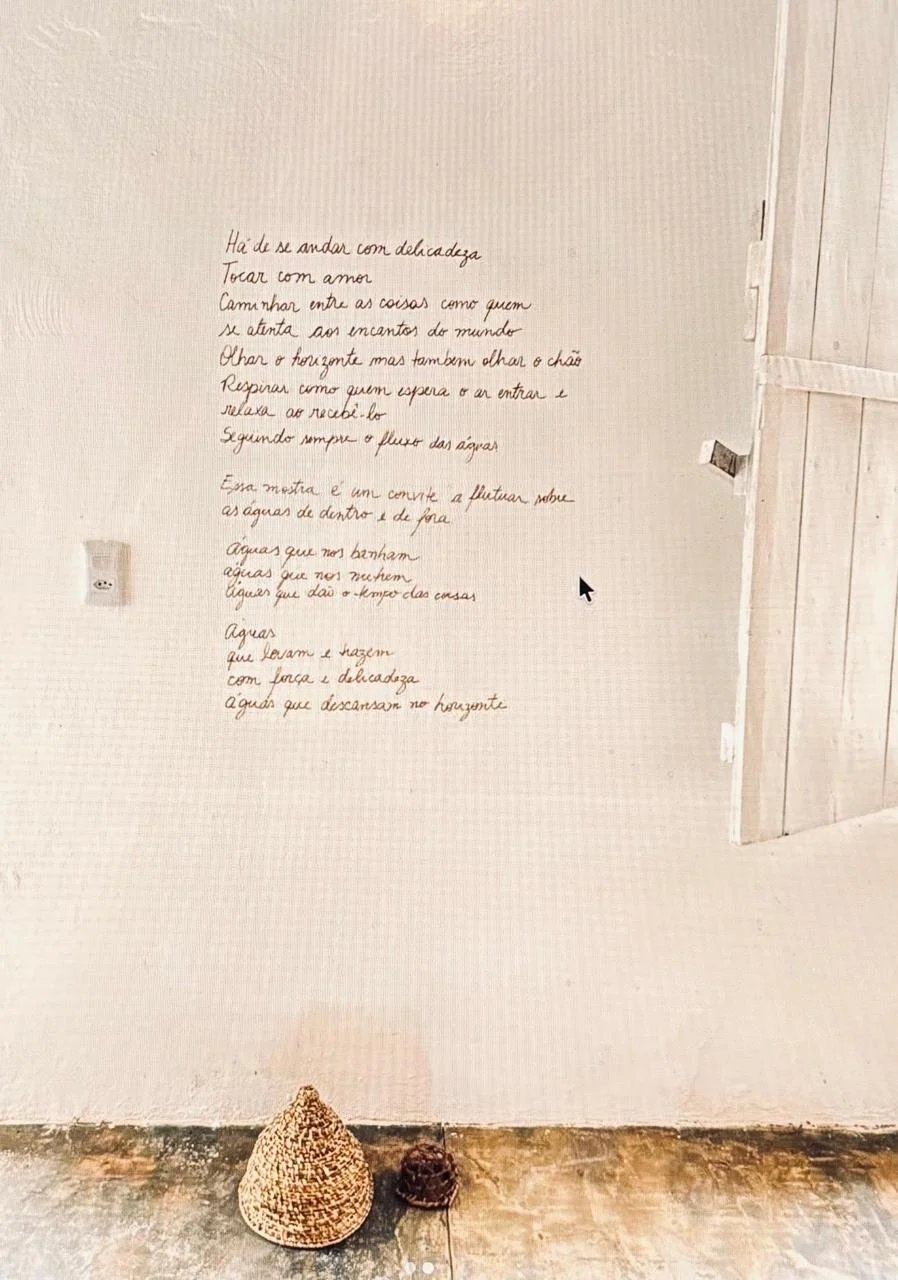 Há de se andar com delicadeza
Tocar com amor
Caminhar entre as coisas como quem
se atenta aos encantos do mundo
Olhar o horizonte mas tambem olhar o chão
Respirar como quem espera o ar entrar e
relaxa ao recebê-lo
Seguindo sempre o fluxo das águas
Essa mostra é um convite a flutuar sobre
as águas de dentro e de fora
Águas que nos banham
águas que nos nutrem
Águas que dão o tempo das coisas
Águas
que levam e trazem
com força e delicadeza
águas que descansam no horizonte